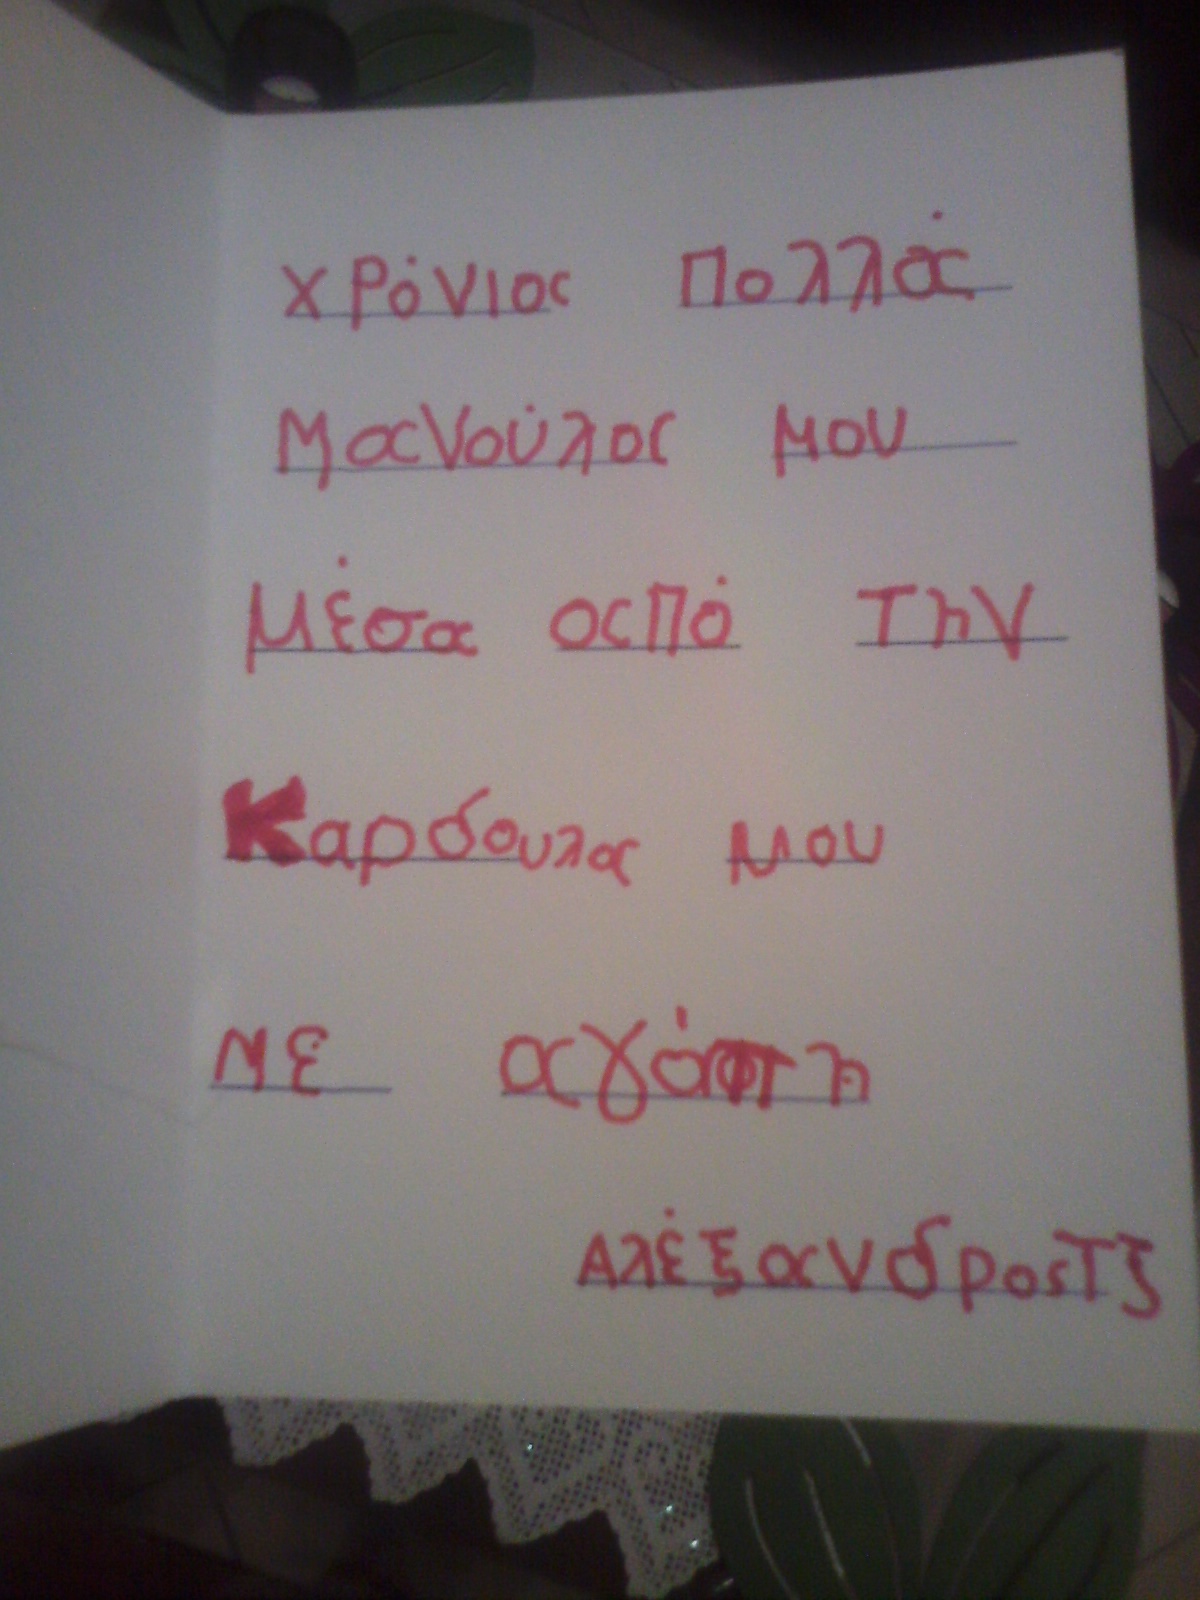 χρόνια Πολλά
Μανούλα μου
Μέσα από την
Καρδουλα μου
ΜΕ αγάπη
Αλέξανδρος Τζ